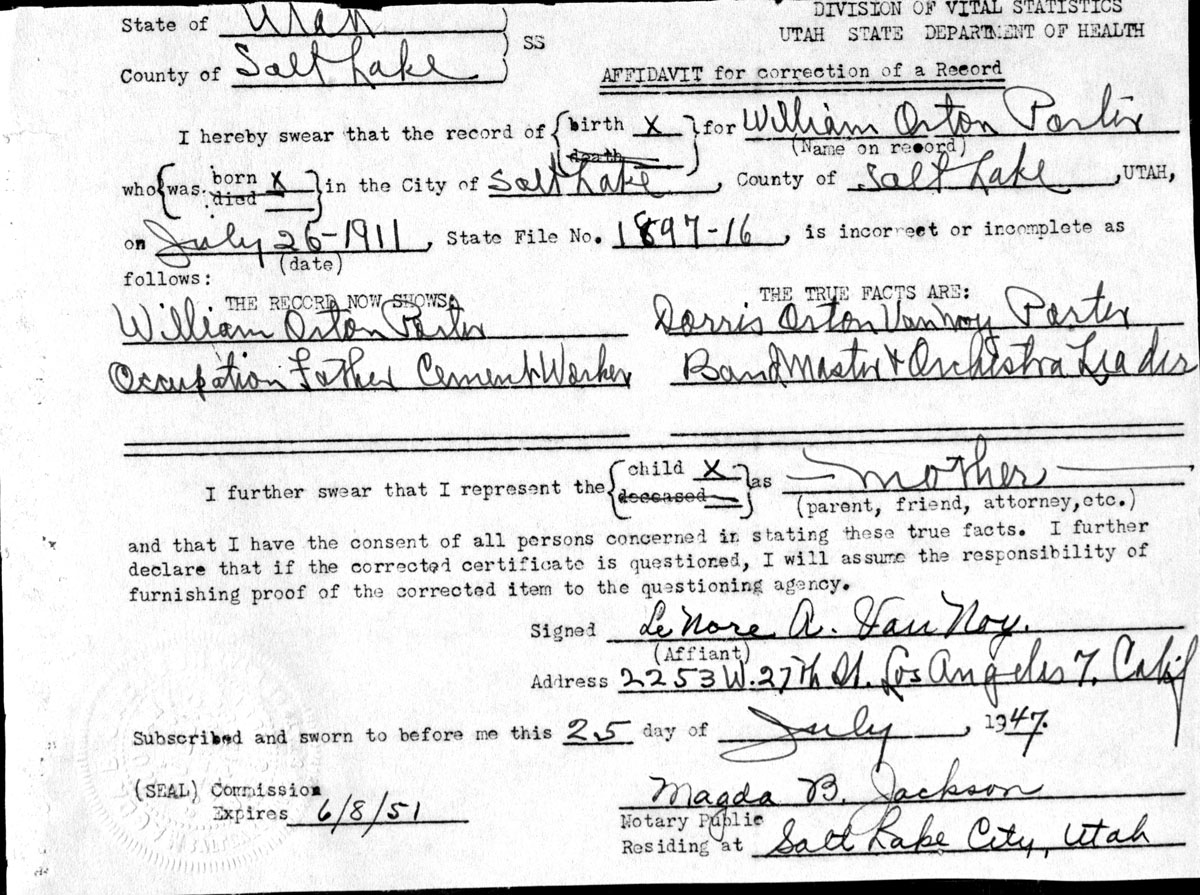 DIVISION OF VITAL STATISTICS
State of Utah
UTAH STATE DEPARTMENT OF HEALTH
SS
County of Salt Lake
AFFIDAVIT for correction of a Record
I hereby swear that the record of birth X for William Orton Porter
death (Name on record)
who was born X in the City of Salt Lake, County of Salt Lake, UTAH,
died
on July 26-1911, State File No. 1897-16, is incorrect or incomplete as
(date)
follows:
THE RECORD NOW SHOWS: THE TRUE FACTS ARE:
William Orton Porter Dorris Orton Van Noy Porter
Occupation Father Cement Worker Band Master & Orchestra Leader
child X
I further swear that I represent the as mother
deceased
(parent, friend, attorney, etc.)
and that I have the consent of all persons concerned in stating these true facts. I further
declare that if the corrected certificate is questioned, I will assume the responsibility of
furnishing proof of the corrected item to the questioning agency.
Signed LeNore A. Van Noy.
(Affiant)
Address 2253 W. 27th St. Los Angeles 7. Calif
Subscribed and sworn to before me this 25 day of July, 1947.
(SEAL) Commission Magda B. Jackson
Expires 6/8/51 Notary Public
Residing at Salt Lake City, Utah